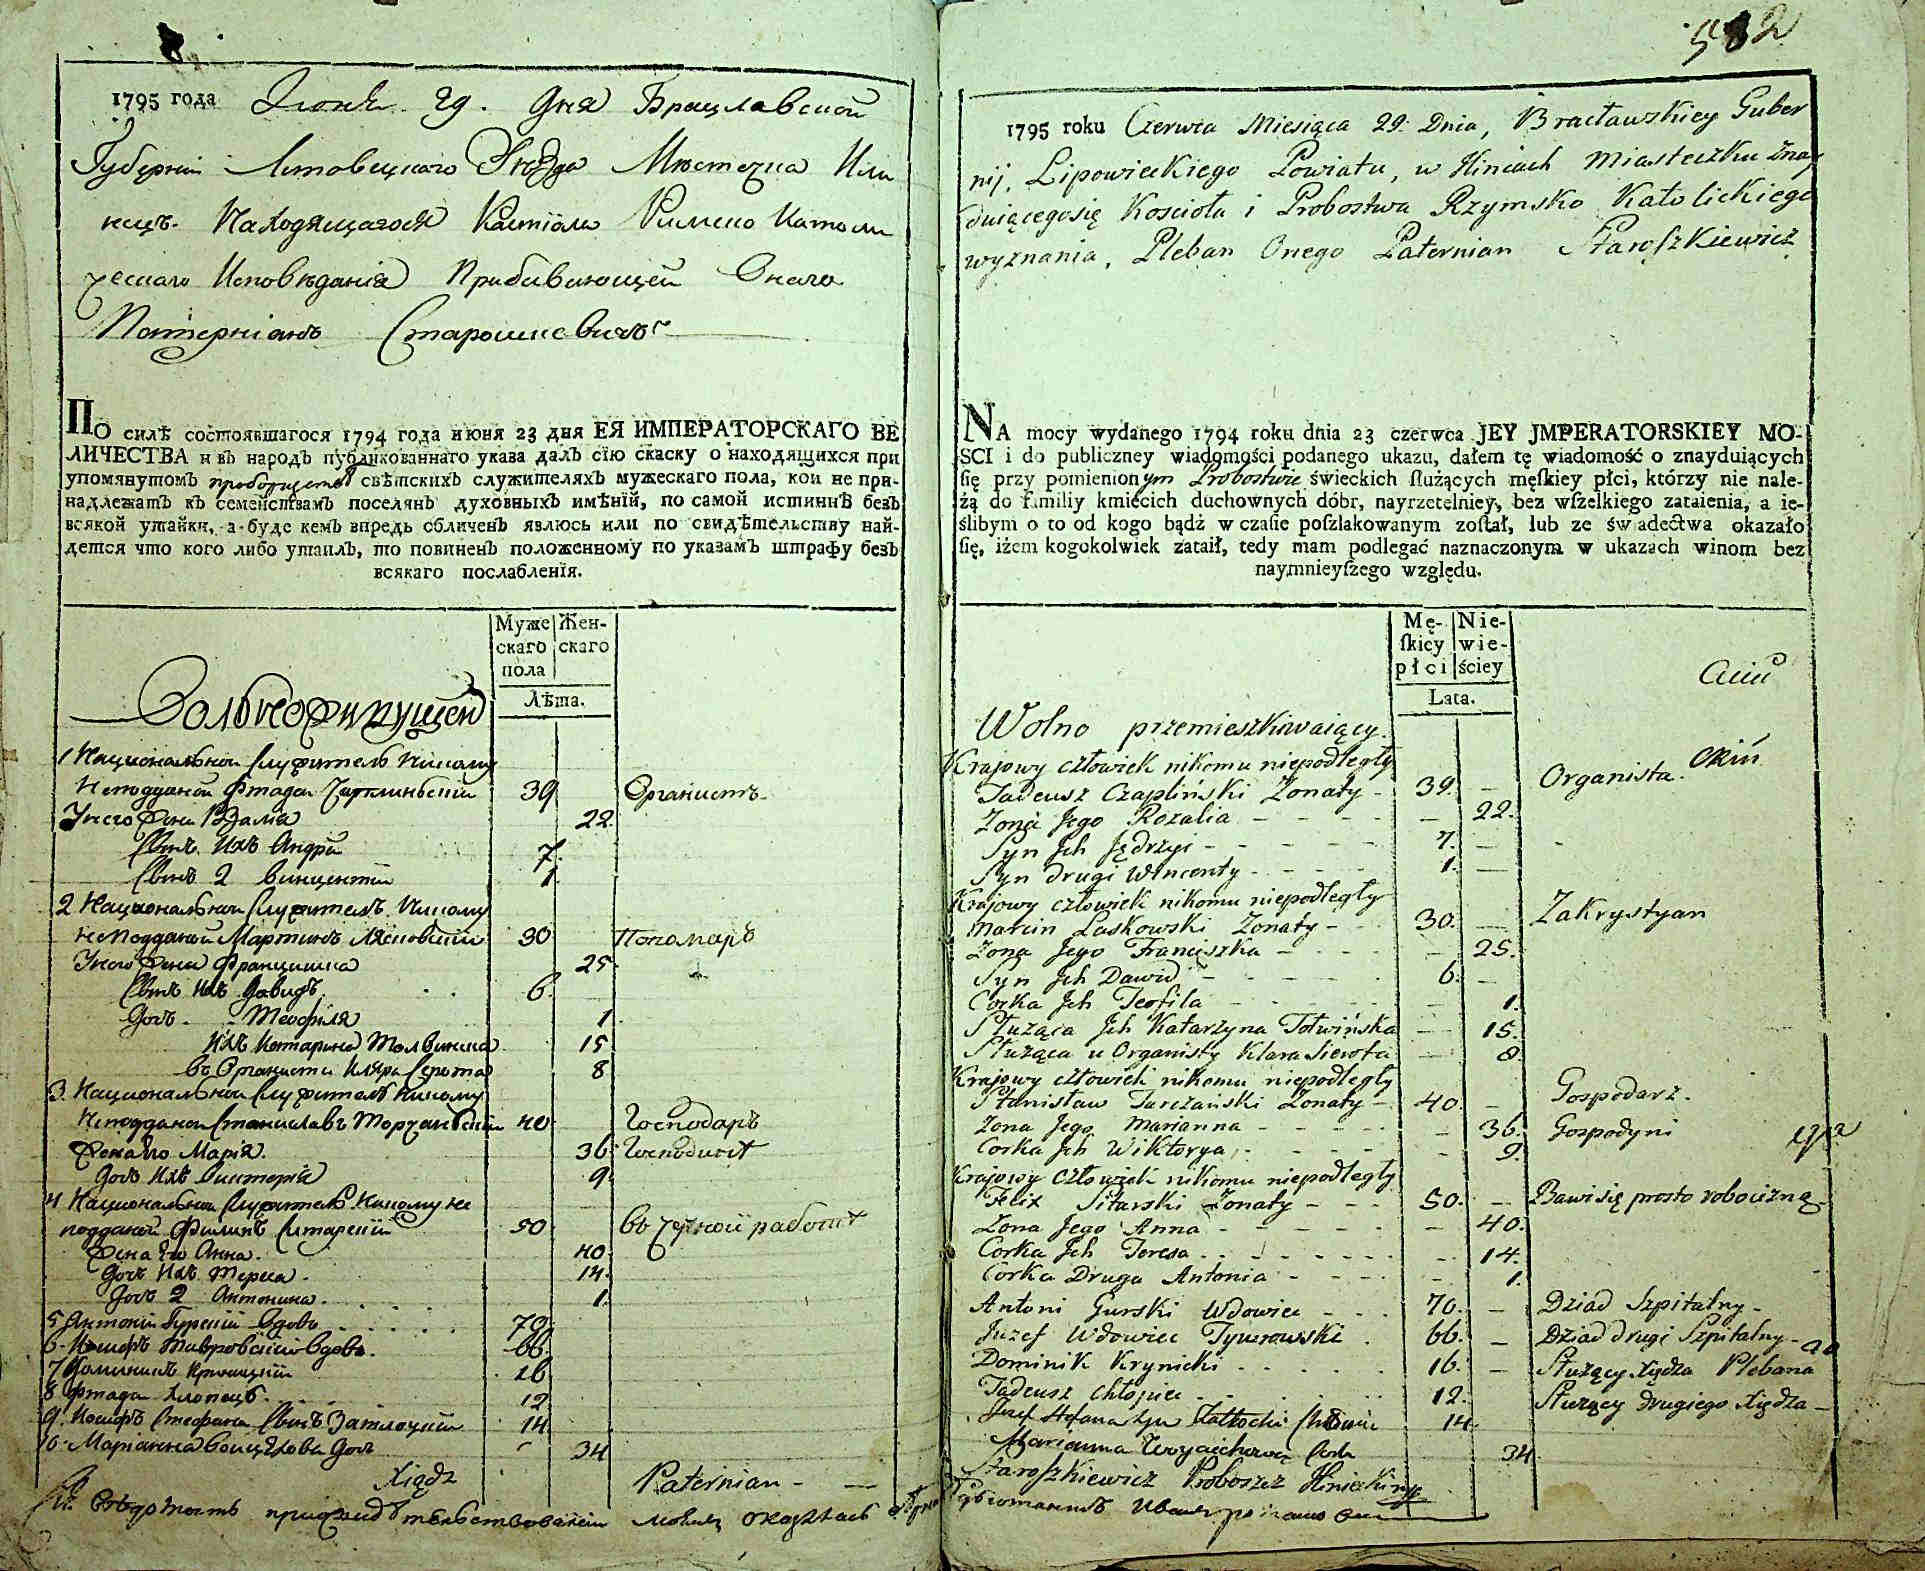 582
1795 года Июня 29. Дня Брацлавской
Губерніи Липовецкаго Уѣзда Мѣстечка Или
нецъ. Находящагося Костіола Римско Катол
ческаго Исповѣданія
Патерніанъ Старошкевичъ
По силѣ состоявшагося 1794 года июня 23 дня ЕЯ ИМПЕРАТОРСКАГО ВЕ
ЛИЧЕСТВА и въ народъ публикованнаго указа далъ сїю скаску о находящихся при
упомянутомъ свѣтскихъ служителяхъ мужескаго пола, кои не при-
надлежатъ къ семействамъ поселянъ духовныхъ имѣнїй, по самой истиннѣ безъ
всякой утайки, а буде кемъ впредь обличенъ явлюсь или по свидѣтельству най-
дется что кого либо утаилъ, то повиненъ положенному по указамъ штрафу безъ
всякаго послабленїя.
Муже Жен-
скаго скаго
пола
Лѣта.
Вольноживущей
1 Національной Служитель Никому
Неподданой Фтадеи Чаплинскій 39 Органистъ
У него Жена 22.
Сынъ Ихъ Андрій 7.
Сынъ 2 Винцентій 1
2 Національной Служитель Никому
Неподданой Мартинъ Лясковскій 30 Пономаръ
У него Жена Францишка 25
Сынъ Ихъ Давидъ 6.
Дочь Теофиля 1
Ихъ Катарина Толвинска 15
Органисти Кляра Сирота 8
3. Національной Служитель Никому
Неподданой Станиславъ Торчанскій 40 Господаръ
Жена Его Марія. 36 Господиня
Дочь Ихъ Викторія 9.
4 Національной Служитель Никому не
подданой Филипъ Ситарскій 50 въ черной работѣ
Жена Его Анна. 40.
Дочь Ихъ Тереса. 14.
Дочь 2 Антонина. 1.
5 Антоній Гурскій Вдова 70
6. Іосифъ Тивровскій Вдова. 66.
7 Доминикъ Криницкій 16
8 Фтадеи Хлопецъ 12
9. Іосифъ Стефана Сынъ Затлоцкій 14
10. Маріанна Войцѣхова Дочь 34
Xiądz Paternian
1795 roku Czerwca Miesiąca 29. Dnia, Bracławskiey Guber
nij, Lipowieckiego Powiatu, w Ilincach Miasteczku Znay
duiącegosię Kościoła i Probostwa Rzymsko Katolickiego
wyznania, Pleban Onego Paternian Staroszkiewicz
NA mocy wydanego 1794 roku dnia 23 czerwca JEY JMPERATORSKIEY MO-
SCI i do publiczney wiadomości podanego ukazu, dałem tę wiadomość o znayduiących
się przy pomienionym Probostwie świeckich służących męskiey płci, którzy nie nale-
żą do familiy kmiecich duchownych dóbr, nayrzetelniey, bez wszelkiego zataienia, a ie-
ślibym o to od kogo bądź w czasie poszlakowanym został, lub ze świadectwa okazało
się, iżem kogokolwiek zataił, tedy mam podlegać naznaczonym w ukazach winom bez
naymnieyszego względu.
Mę- Nie-
skiey wie-
płci ściey
Lata.
Wolno przemieszkiwaiący.
Krajowy człowiek nikomu niepodległy
Tadeusz Czapliński Żonaty - 39. Organista.
Żona Jego Rozalia 22.
Syn Jch Jędrzyi 7.
Syn drugi Wincenty 1.
Krajowy człowiek nikomu niepodległy
Marcin Laskowski Żonaty 30. Zakrystyan
Żona Jego Franciszka 25.
Syn Jch Dawid 6.
Corka Jch Teofila 1.
Służąca Jch Katarzyna Tołwińska 15.
Służąca u Organisty Klara Sierota 8
Krajowy człowiek nikomu niepodległy
Stanisław Tarczański Żonaty 40. Gospodarz.
Żona Jego Marianna 36. Gospodyni
Corka Jch Wiktorya 9.
Krajowy człowiek nikomu niepodległy
Felix Sitarski Żonaty 50. Bawi się prosto robocizną
Żona Jego Anna 40.
Corka Jch Teresa 14.
Corka Druga Antonia 1.
Antoni Gurski Wdowiec 70. Dziad Szpitalny
Juzef Wdowiec Tywrowski 66. Dziad drugi Szpitalny
Dominik Krynicki 16. Służący Xiędza Plebana
Tadeusz chłopiec 12. Służący drugiego Xiędza
Jozef Stefana Syn Zatłocki 14
Marianna Woyciechowa Corka 34
Staroszkiewicz Proboszcz Ilniecki